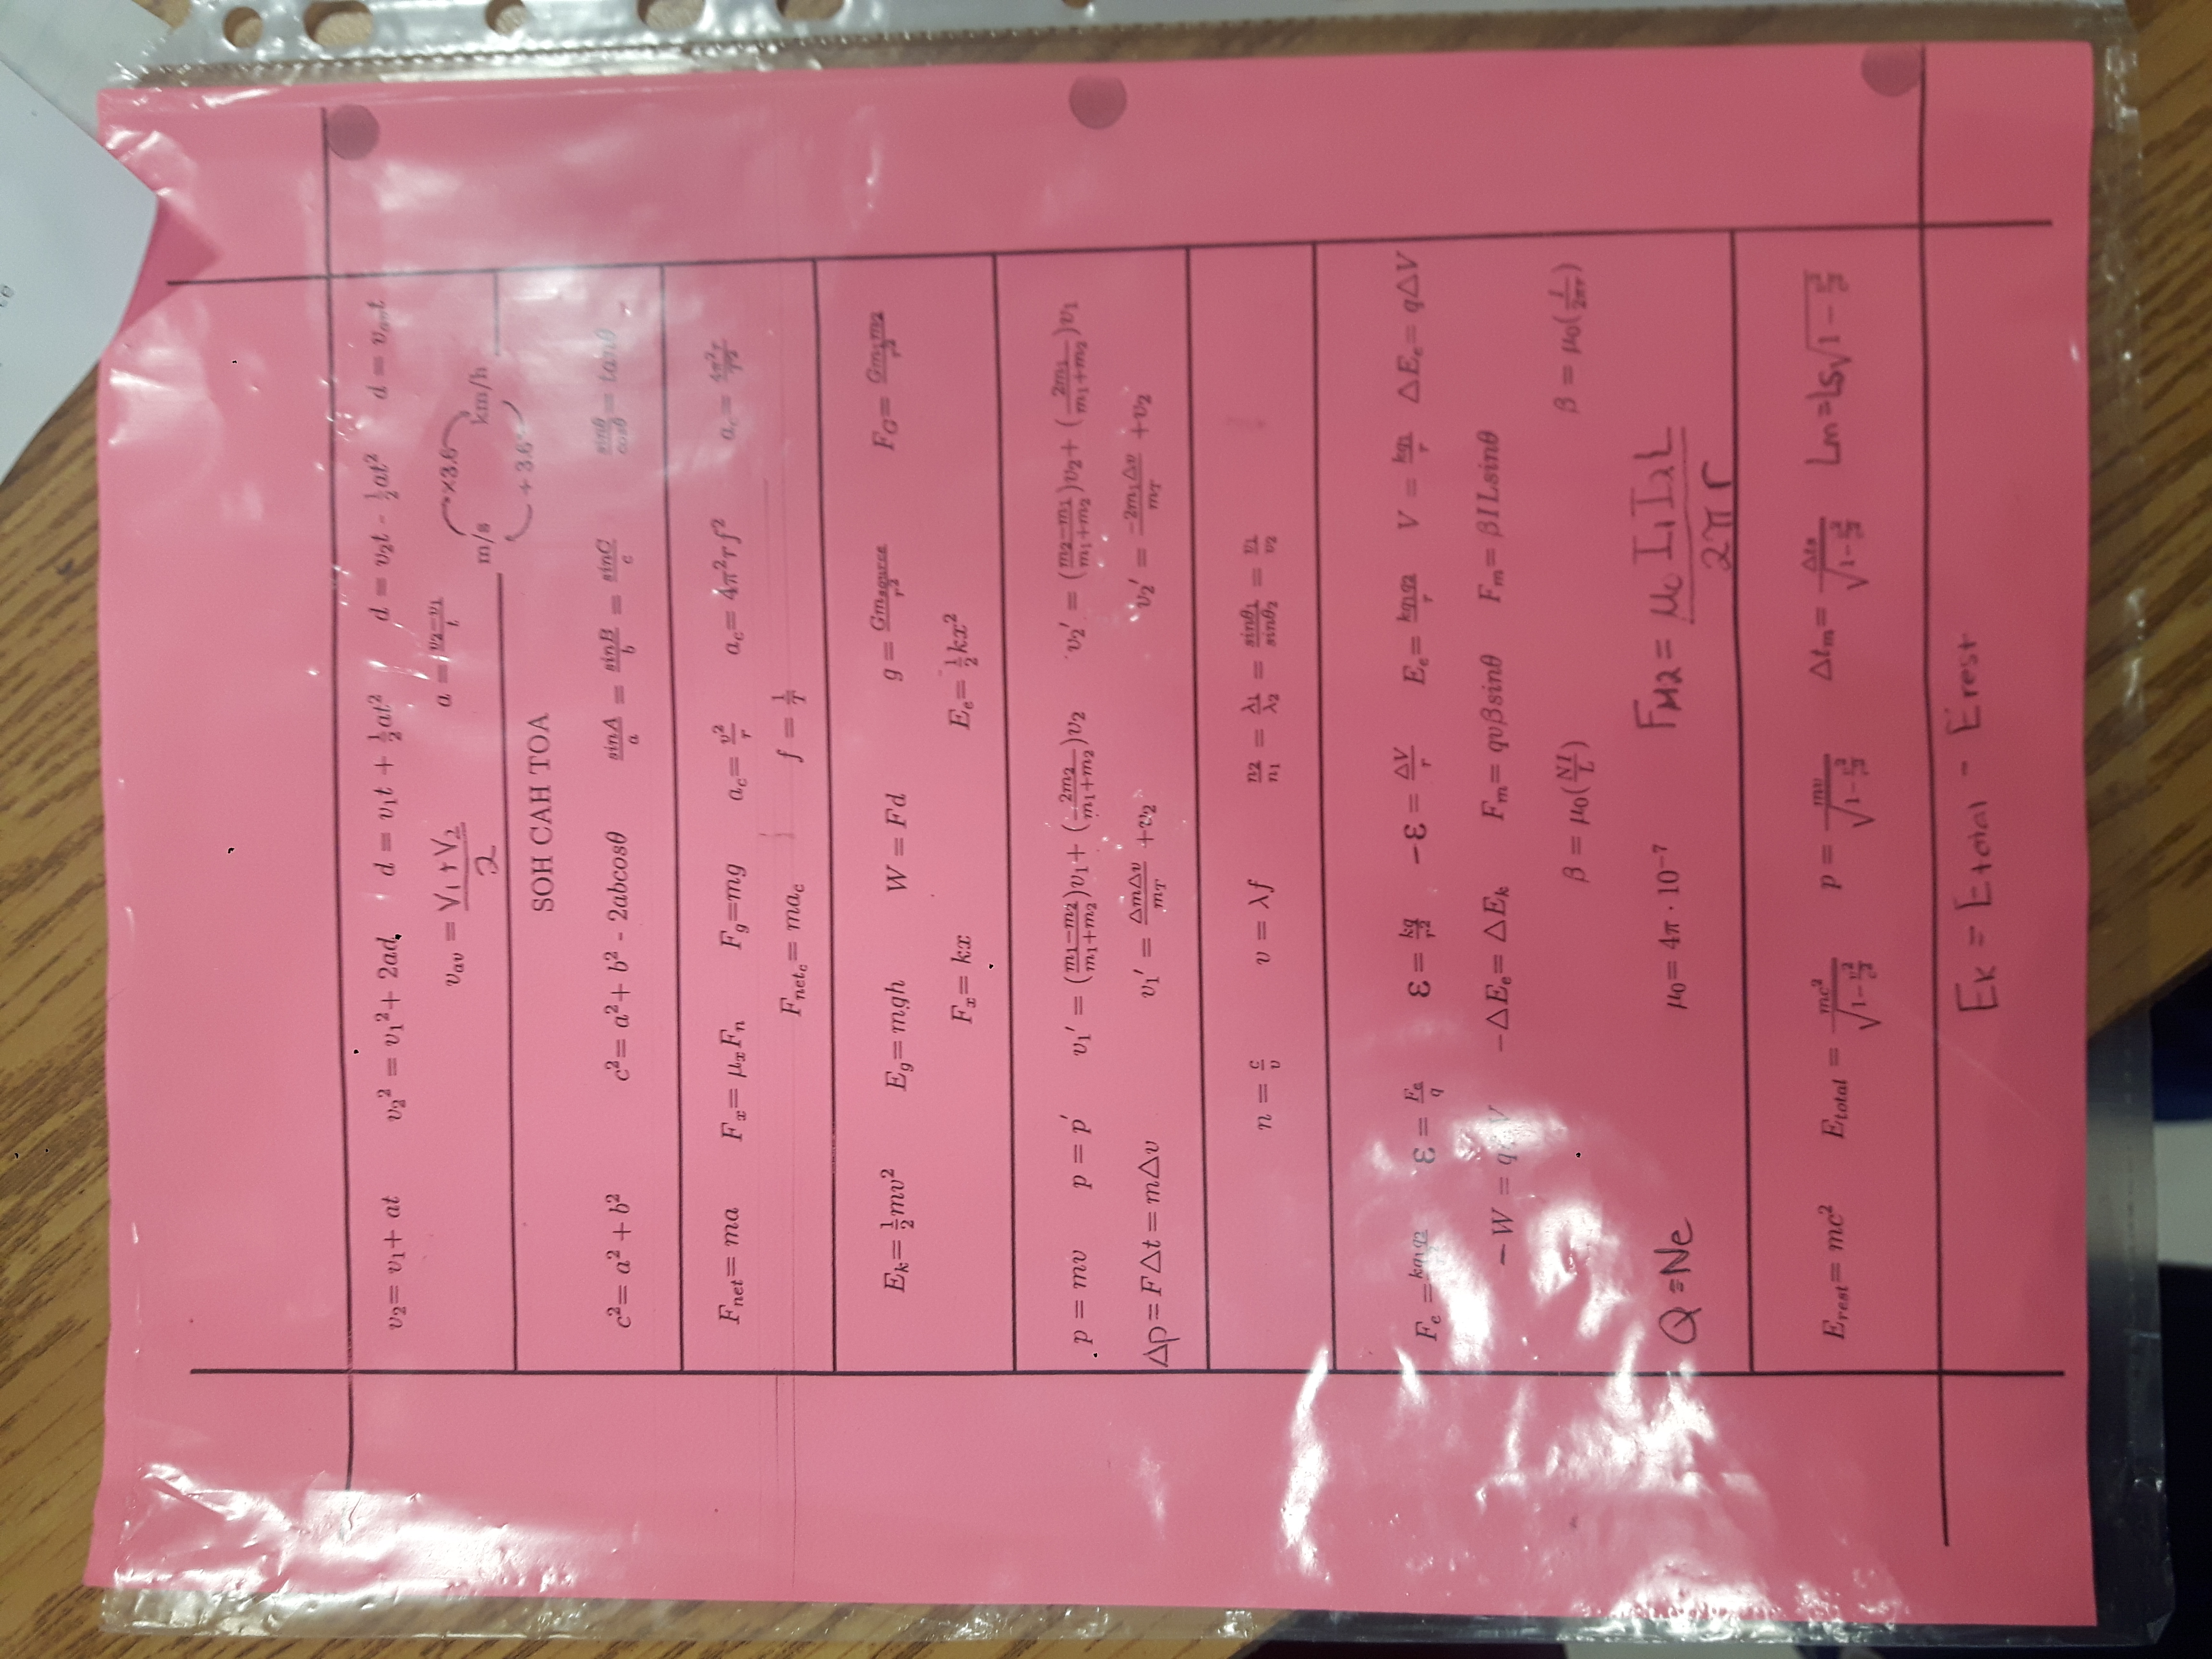 v₂ = v₁ + at    v₂² = v₁² + 2ad    d = v₁t + ½at²    d = v₂t - ½at²    d = v_av t
v_av = (V₁ + V₂)/2    a = (v₂ − v₁)/t    m/s ×3.6 km/h
÷3.6
SOH CAH TOA
c² = a² + b²    c² = a² + b² - 2abcosθ    sinA/a = sinB/b = sinC/c    sinθ/cosθ = tanθ
F_net = ma    F_x = μ_x F_n    F_g = mg    a_c = v²/r    a_c = 4π²rf²    a_c = 4π²r/T²
F_net_c = ma_c    f = 1/T
E_k = ½mv²    E_g = mgh    W = Fd    g = Gm_source/r²    F_G = Gm₁m₂/r²
F_x = kx    E_e = ½kx²
p = mv    p = p′    v₁′ = ((m₁−m₂)/(m₁+m₂))v₁ + (2m₂/(m₁+m₂))v₂    v₂′ = ((m₂−m₁)/(m₁+m₂))v₂ + (2m₁/(m₁+m₂))v₁
Δp = FΔt = mΔv    v₁′ = ΔmΔv/m_T + v₂    v₂′ = −2m₁Δv/m_T + v₂
n = c/v    v = λf    n₂/n₁ = λ₁/λ₂ = sinθ₁/sinθ₂ = v₁/v₂
F_e = kq₁q₂    ε = F_e/q    ε = kq/r²    −ε = ΔV/r    E_e = kq₁q₂/r    V = kq/r    ΔE_e = qΔV
−W = q V    −ΔE_e = ΔE_k    F_m = qvβsinθ    F_m = βILsinθ
β = μ₀(NI/L)    β = μ₀(I/2πr)
Q = Ne    μ₀ = 4π · 10⁻⁷    F_M2 = μ₀I₁I₂L/2πr
E_rest = mc²    E_total = mc²/√(1−v²/c²)    p = mv/√(1−v²/c²)    Δt_m = Δt_s/√(1−v²/c²)    Lm = Ls√(1 − v²/c²)
Ek = Etotal − Erest